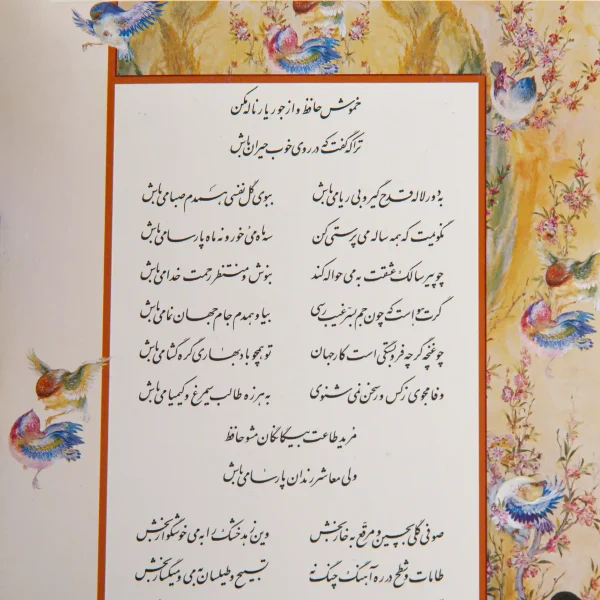 خموش حافظ و از جور یار ناله مکن
ترا که گفت که در روی خوب حیران باش
به دور لاله قدح گیر و بی ریا می باش ببوی گل نفسی همدم صبا می باش
نگویمت که همه ساله می پرستی کن سه ماه می خور و نه ماه پارسا می باش
چو پیر سالک عشقت به می حواله کند بنوش و منتظر رحمت خدا می باش
گرت هواست که چون جم بسر غیب رسی بیا و همدم جام جهان نما می باش
چو غنچه گرچه فروبستگی است کار جهان تو همچو باد بهاری گره گشا می باش
وفا مجوی ز کس ور سخن نمی شنوی به هرزه طالب سیمرغ و کیمیا می باش
مرید طاعت بیگانگان مشو حافظ
ولی معاشر رندان پارسا می باش
صوفی گلی بچین و مرقع به خار بخش وین زهد خشک را به می خوشگوار بخش
طامات و شطح در ره آهنگ چنگ نه تسبیح و طیلسان به می و میگسار بخش